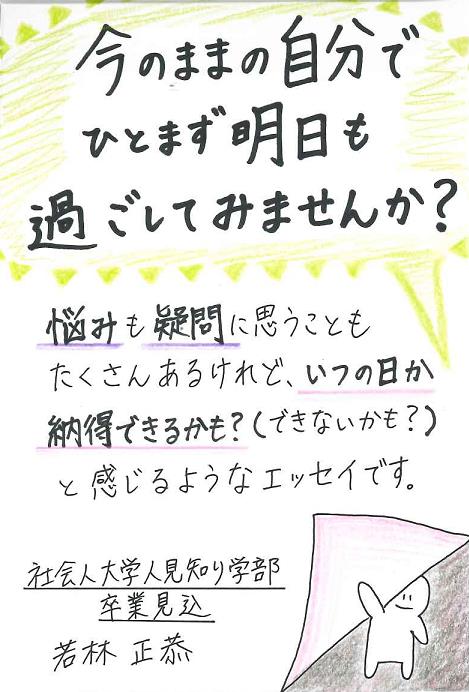 今のままの自分で
ひとまず明日も
過ごしてみませんか?
悩みも疑問に思うことも
たくさんあるけれど、いつの日か
納得できるかも?(できないかも?)
と感じるようなエッセイです。
社会人大学人見知り学部
卒業見込
若林 正恭